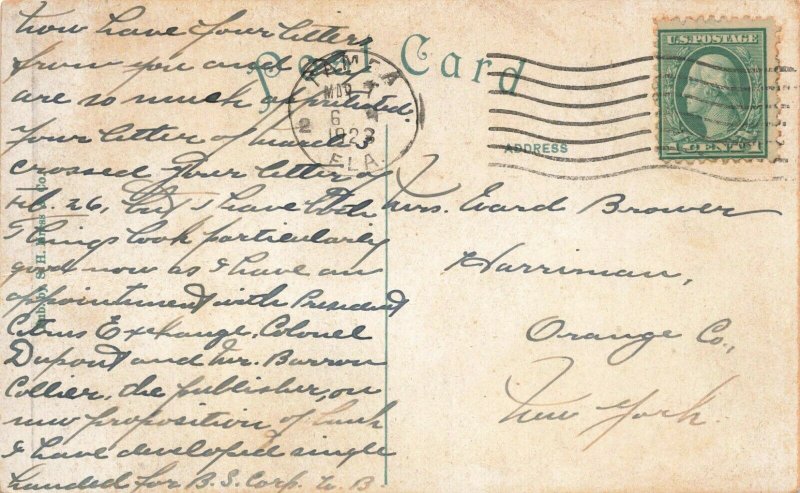 now have your letters
from you and
are so much appreciated.
Your letter of March 3
crossed your letter of
Feb. 26, but I have both
Things look particularly
good now as I have an
appointment with President
Citrus Exchange, Colonel
Dupont and Mr. Barron
Collier, the publisher, on
new proposition of bunk
I have developed single
handed for B.S. Corp. W.B.
Post Card
ADDRESS
TAMPA
MAR 7
6
1923
FLA.
2
U.S. POSTAGE
1 CENT 1
Mrs. Evard Brower
Harriman,
Orange Co.,
New York.
Pub. by S. H. Kress & Co.